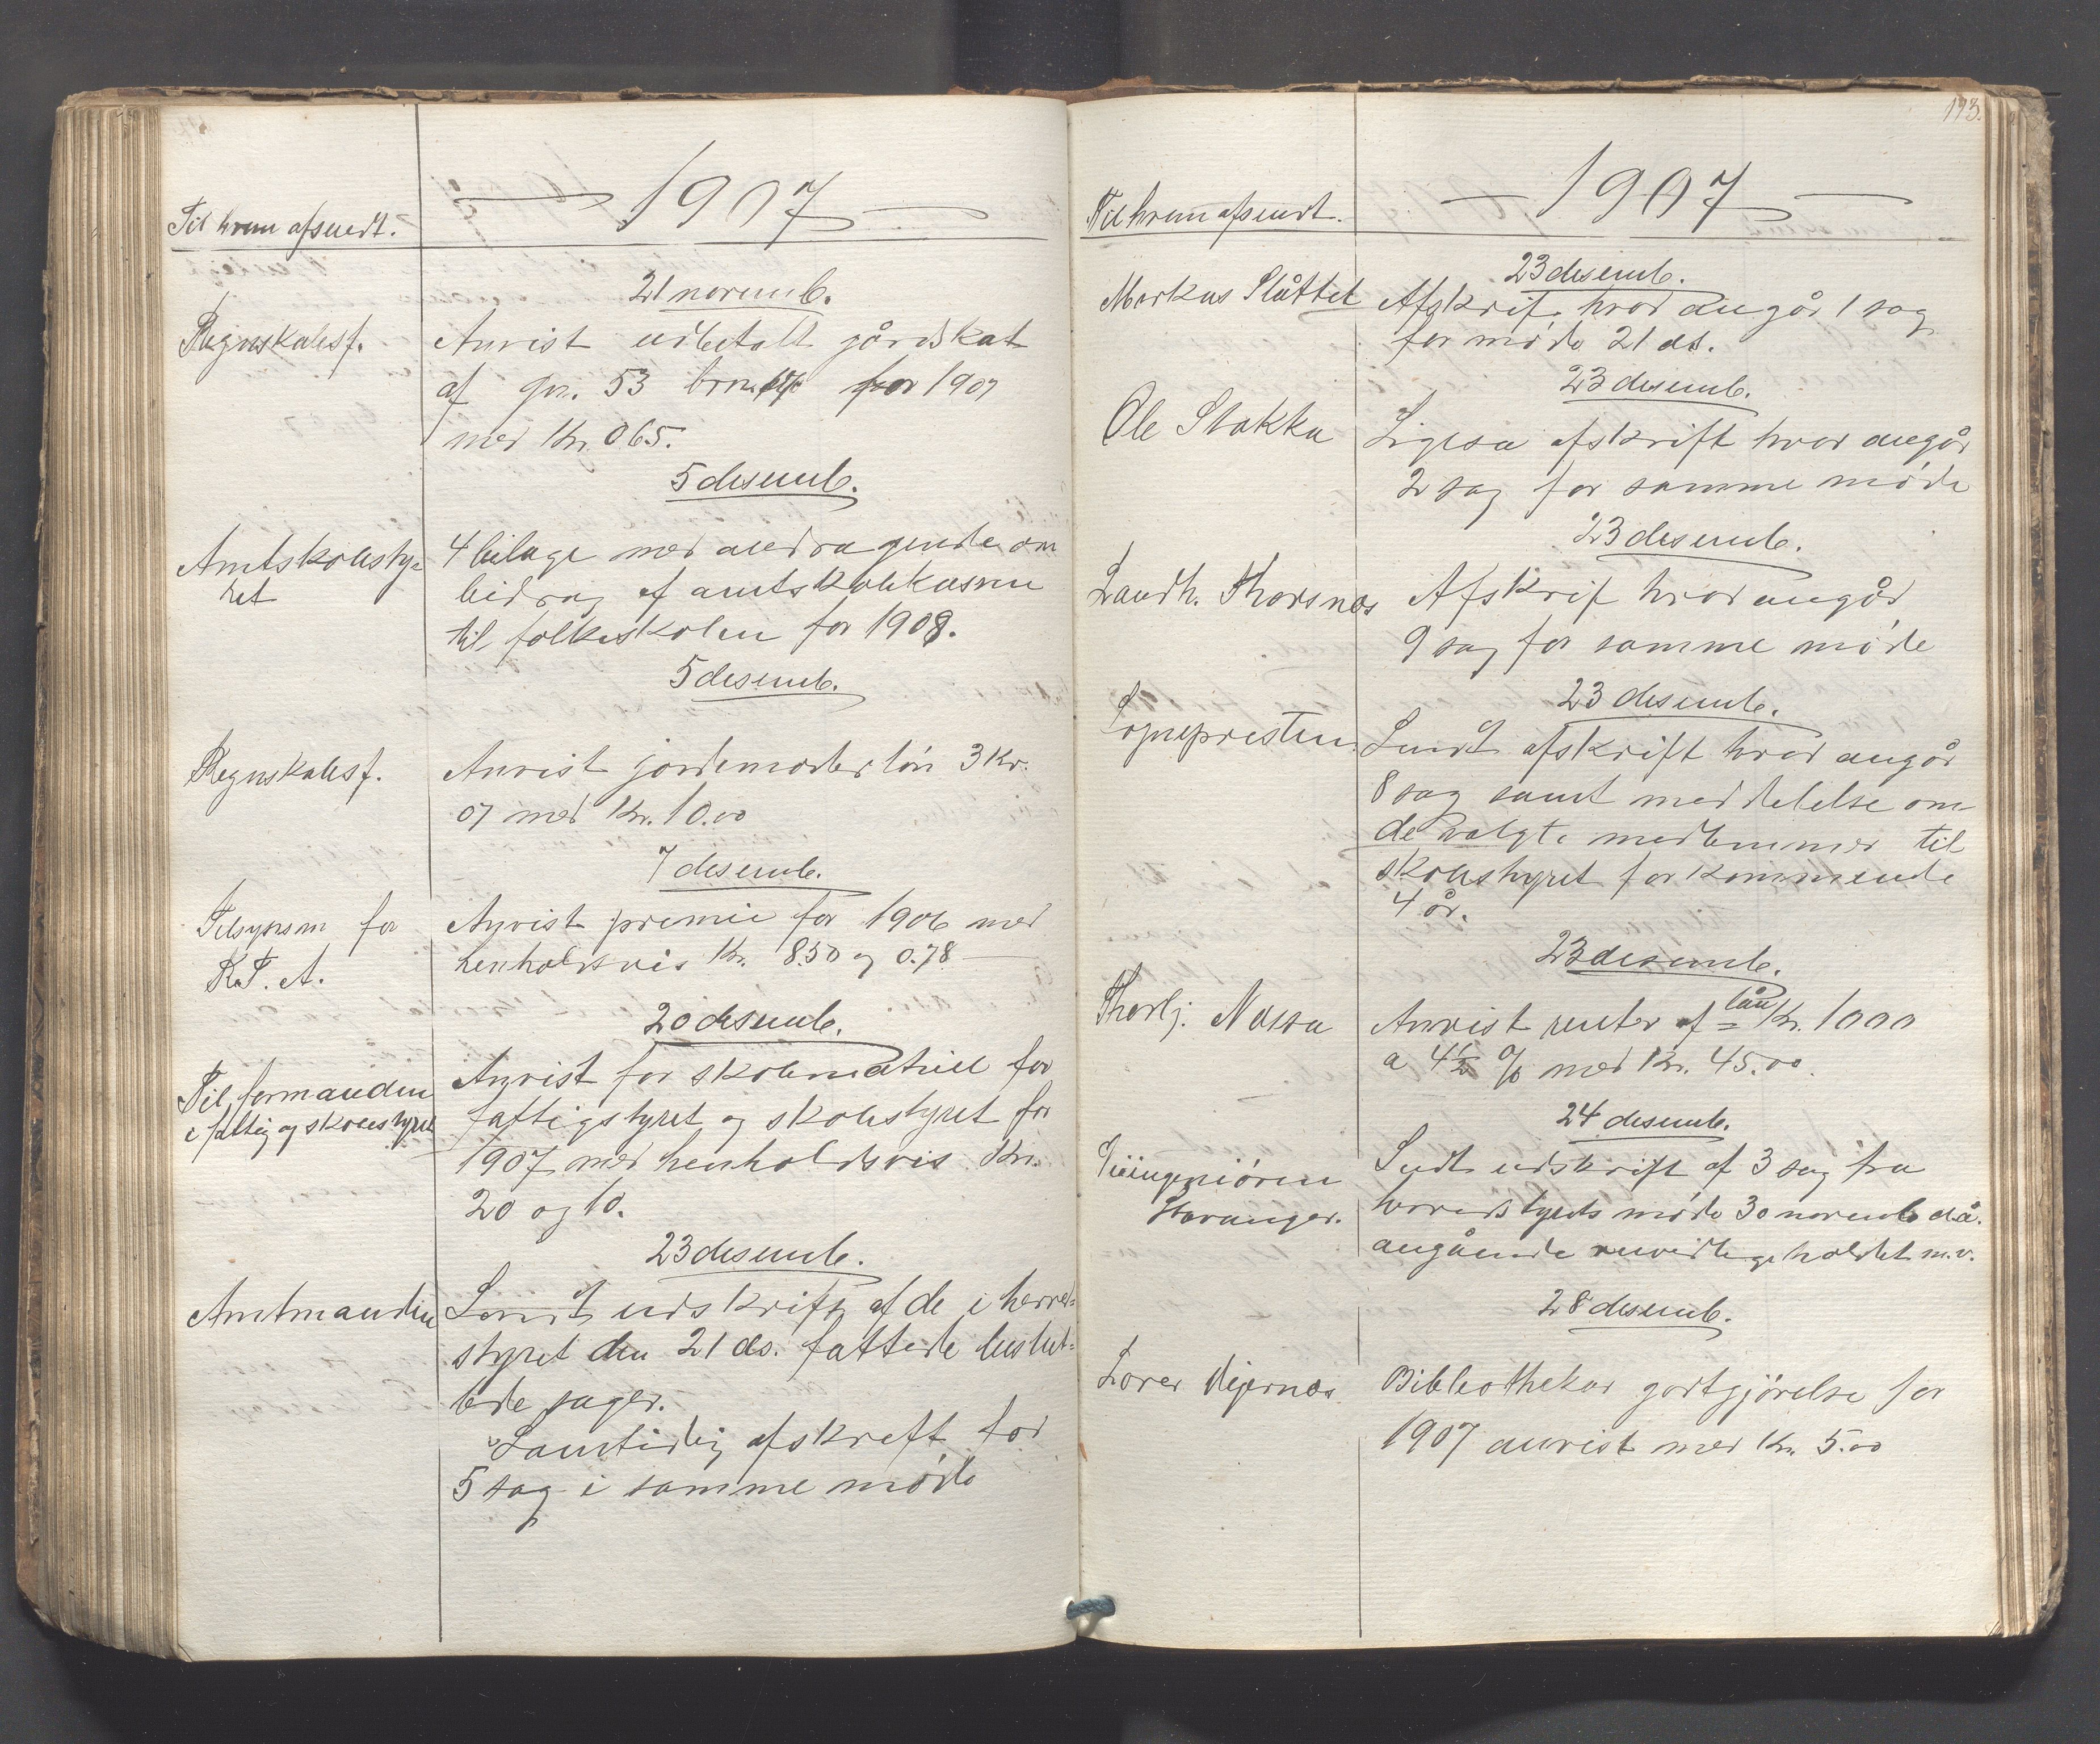 Til hvem afsendt.
1907
21 novemb.
Regnskabsf.
Anvist udbetalt gårdskat
af gn. 53 brn. for 1907
med Kr. 065.
5 desemb.
Amtskolesty-
ret
4 bilage med andragende om
bidrag af amtskolekassen
til folkeskolen for 1908.
5 desemb.
Regnskabsf.
Anvist jordemoderløn 3 kv.
07 med Kr. 10.00
7 desemb.
Tilsynsm for
R.F. A.
Anvist premie for 1906 med
henholdsvis Kr. 8.50 og 0.78
20 desemb.
Til formanden
i fattig og skolestyret
Anvist for skolematriel for
fattigstyret og skolestyret for
1907 med henholdsvis Kr.
20 og 10.
23 desemb.
Amtmanden
Sendt udskrift af de i herred-
styret den 21 ds. fattede beslut-
tede sager.
Samtidig afskreft for
5 sag i samme møde
173.
Til hvem afsendt.
1907
23 desemb.
Markus Slåttet
Afskrif. hvad angår 1 sag
for møde 21 ds.
23 desemb.
Ole Stakka
Ligesa afskrift hvad angår
2 sag for samme møde
23 desemb.
Landh. Thorsnæs
Afskrif hvad angår
9 sag for samme møde
23 desemb.
Sognepresten
Sendt afskrift hvad angår
8 sag samt meddelelse om
de valgte medlemmer til
skolestyret for kommende
4 år.
23 desemb.
Thorbj. Nessa
Anvist renter af lån Kr. 1000
a 4½ % med Kr. 45.00.
24 desemb.
Veiingeniøren
Stavanger.
Sendt udskrift af 3 sag fra
herredstyrets møde 30 novemb d.å.
angående veivedligeholdet m.v.
28 desemb.
Lærer
Bibliothekar godtgjørelse for
1907 anvist med Kr. 5.00